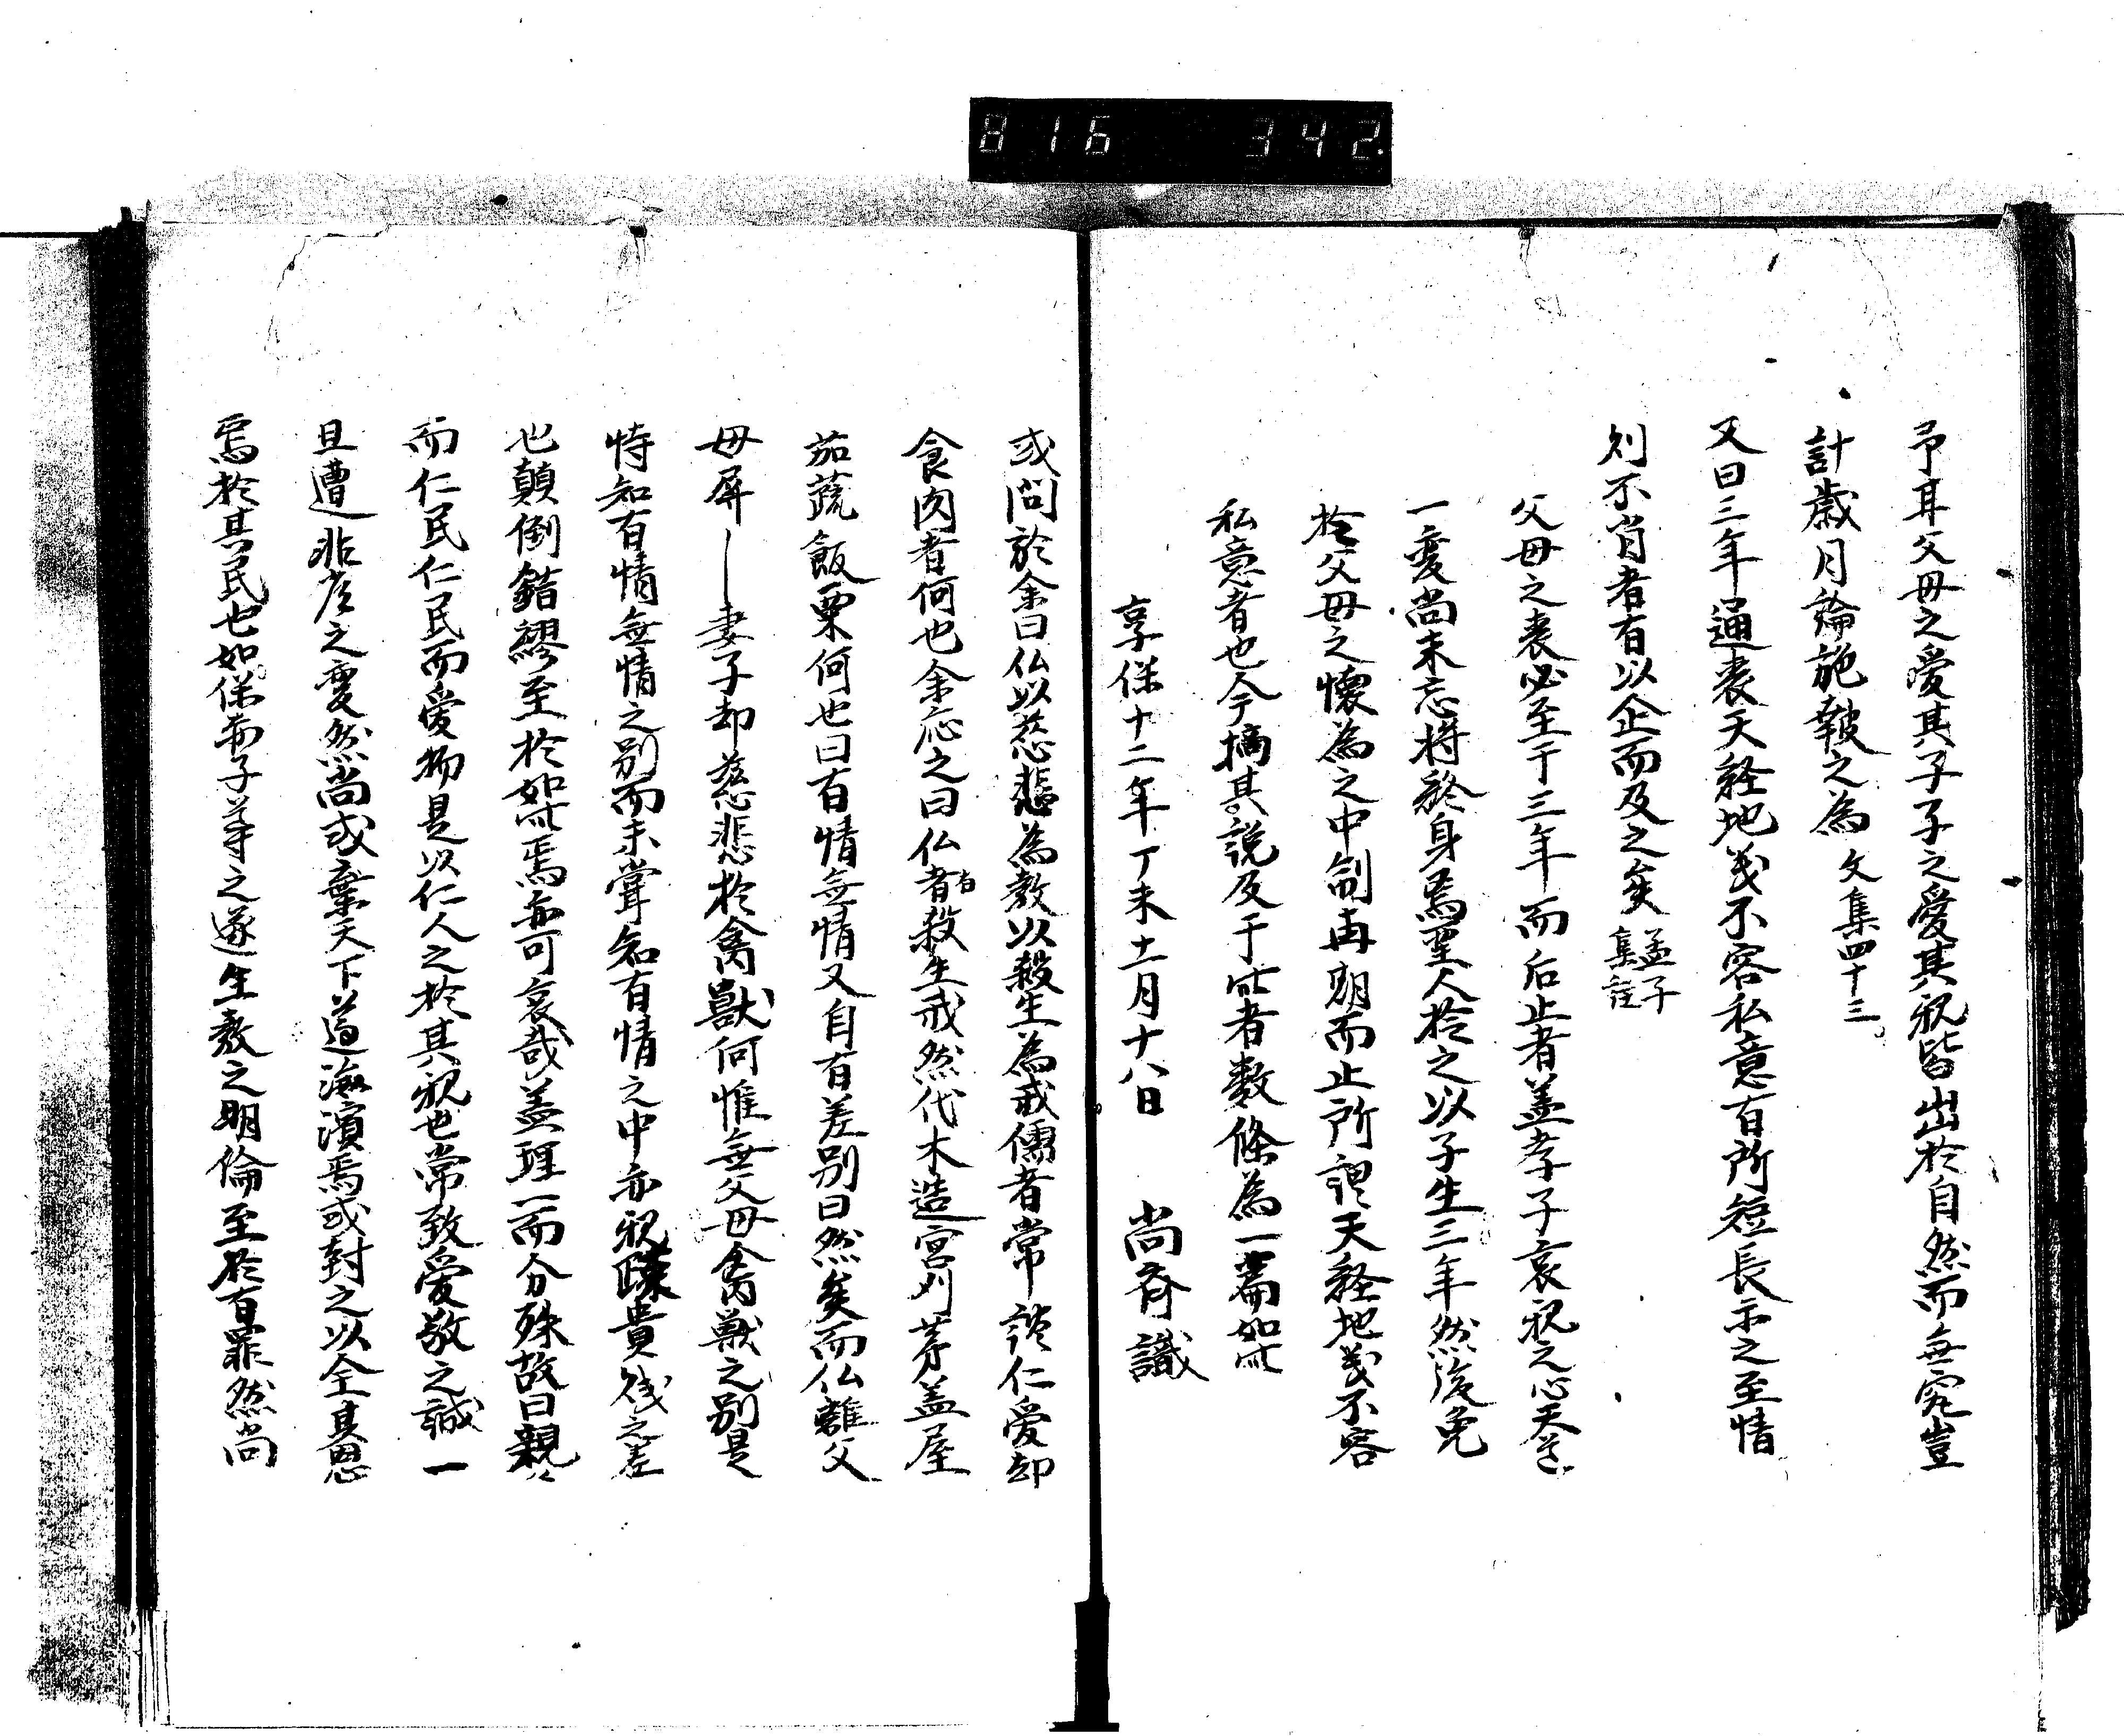 816 342.
予耳父母之愛其子子之愛其親皆出於自然而無窮豈
計歳月論施報之為 文集四十三。
又曰三年通喪天経地義不容私意有所短長示之至情
則不肖者有以企而及之矣 孟子集註
父母之喪必至于三年而后止者盖孝子哀親之心天道
一変尚未忘将終身焉聖人於之以子生三年然後免
於父母之懐為之中制再期而止所謂天経地義不容
私意者也今摘其説及于此者数條為一篇如此
享保十二年丁未十一月十八日 尚斎識
或問於余曰仏以慈悲為教以殺生為戒儒者常談仁愛却
食肉者何也余応之曰仏者有殺生戒然伐木造宮刈茅盖屋
茹蔬飯粟何也曰有情無情又自有差別曰然矣而仏離父
母屏妻子却慈悲於禽獣何惟無父母禽獣之別是
恃知有情無情之別而未嘗知有情之中亦親疎貴賤之差
也顛倒錯繆至於如此焉亦可哀哉盖理一而分殊故曰親々
而仁民仁民而愛物是以仁人之於其親也常致愛敬之誠一
旦遭非彦之変然尚或棄天下遁海濱焉或封之以全其恩
焉於其民也如保赤子養之遂生教之明倫至於有罪然尚